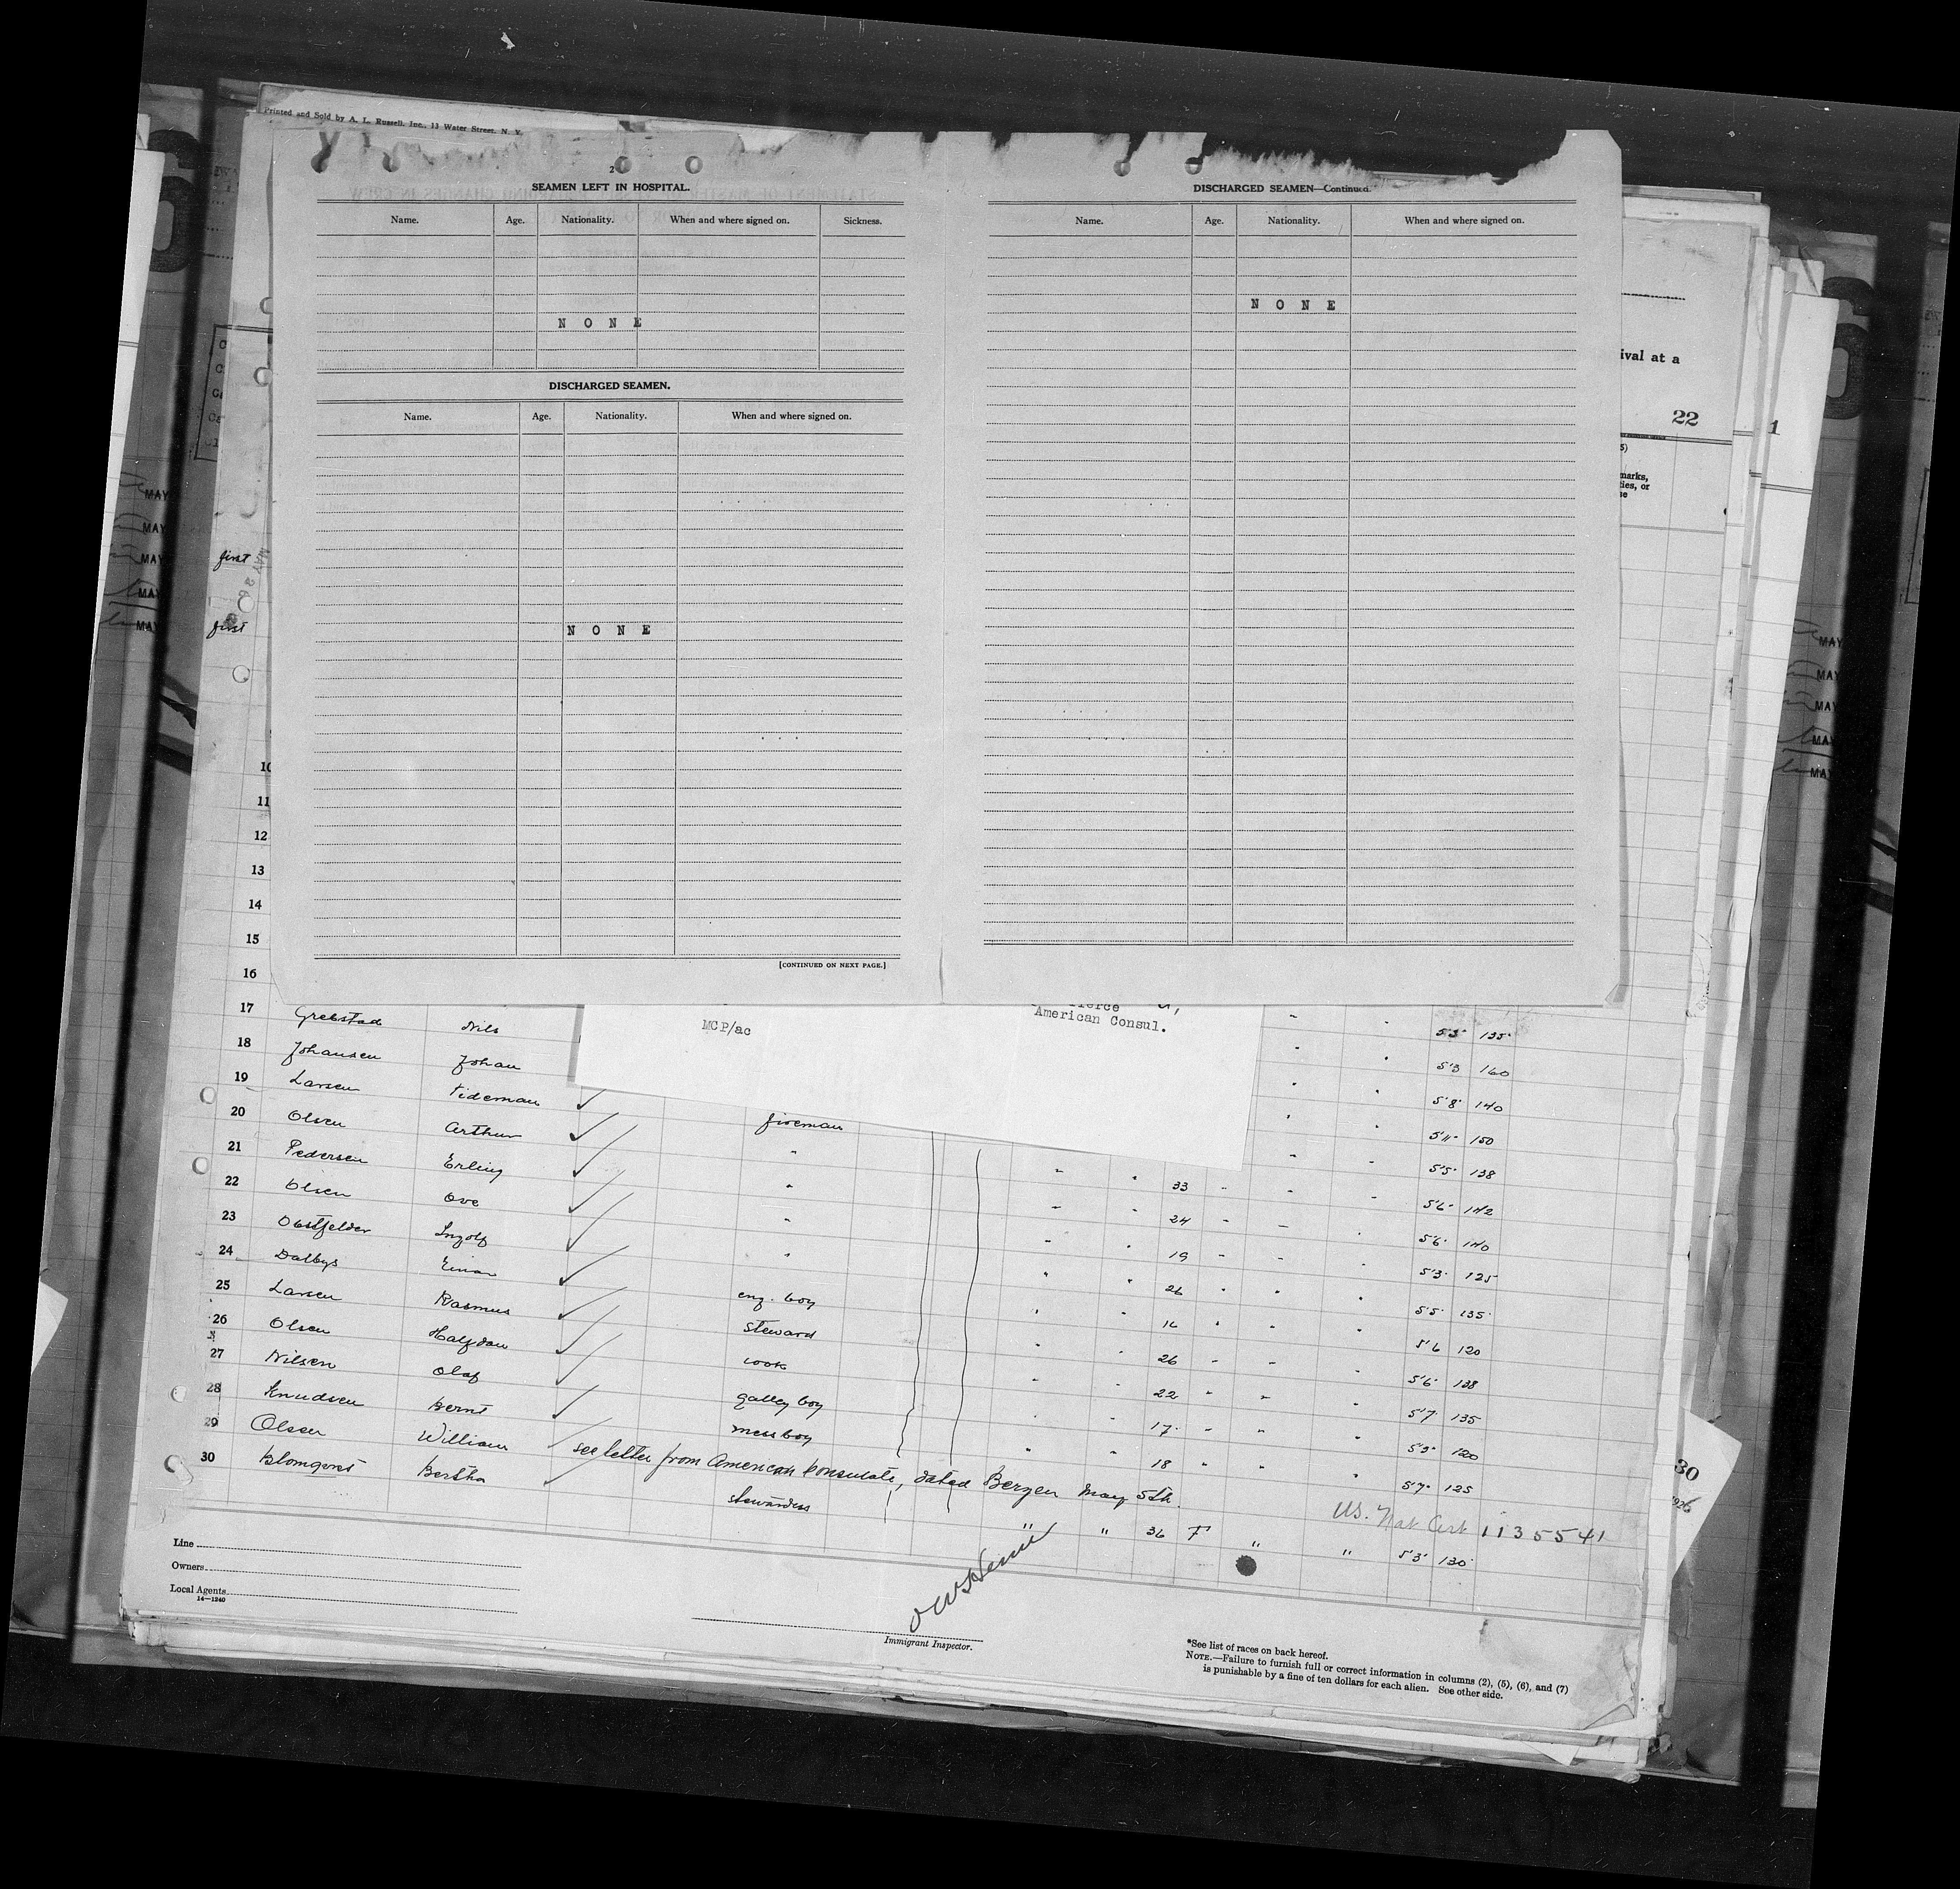 Printed and Sold by A. L. Russell, Inc., 13 Water Street, N. Y.
2
SEAMEN LEFT IN HOSPITAL.
Name. Age. Nationality. When and where signed on. Sickness.
N O N E
DISCHARGED SEAMEN.
Name. Age. Nationality. When and where signed on.
N O N E
[CONTINUED ON NEXT PAGE.]
DISCHARGED SEAMEN—Continued.
Name. Age. Nationality. When and where signed on.
N O N E
ival at a
22
1
5)
marks,
ties, or
se
MAY
MAY
MAY
MAY
MAY
first
first
MAY
MAY
MAY
MAY
MAY
10
11
12
13
14
15
16
MCP/ac
American Consul.
17 Grebstad Nils " " 5'3" 135
18 Johansen Johan " " 5'3 160
19 Larsen Tideman " " 5'8" 140
20 Olsen Arthur fireman " " 5'11" 150
21 Pedersen Erling " " " 33 " " " 5'5" 138
22 Olsen Ove " " " 24 " " " 5'6" 142
23 Obstfelder Ingolf " " " 19 " " " 5'6" 140
24 Dalbys Einar " " " 26 " " " 5'3" 125
25 Larsen Rasmus eng. boy " " 16 " " " 5'5" 135
26 Olsen Halfdan steward " " 26 " " " 5'6 120
27 Nilsen Olaf cook " " 22 " " " 5'6" 138
28 Knudsen Bernt galley boy " " 17 " " " 5'7 135
29 Olsen William mess boy " " 18 " " " 5'9" 120
see letter from American Consulate, dated Bergen May 5th. 5'7" 125
30 Blomqvist Bertha stewardess " " 36 F " " 5'3" 130
US. Nat Cert 1135541
30
1926
Line
Owners
Local Agents
14—1240
Immigrant Inspector.
*See list of races on back hereof.
NOTE.—Failure to furnish full or correct information in columns (2), (5), (6), and (7)
is punishable by a fine of ten dollars for each alien. See other side.